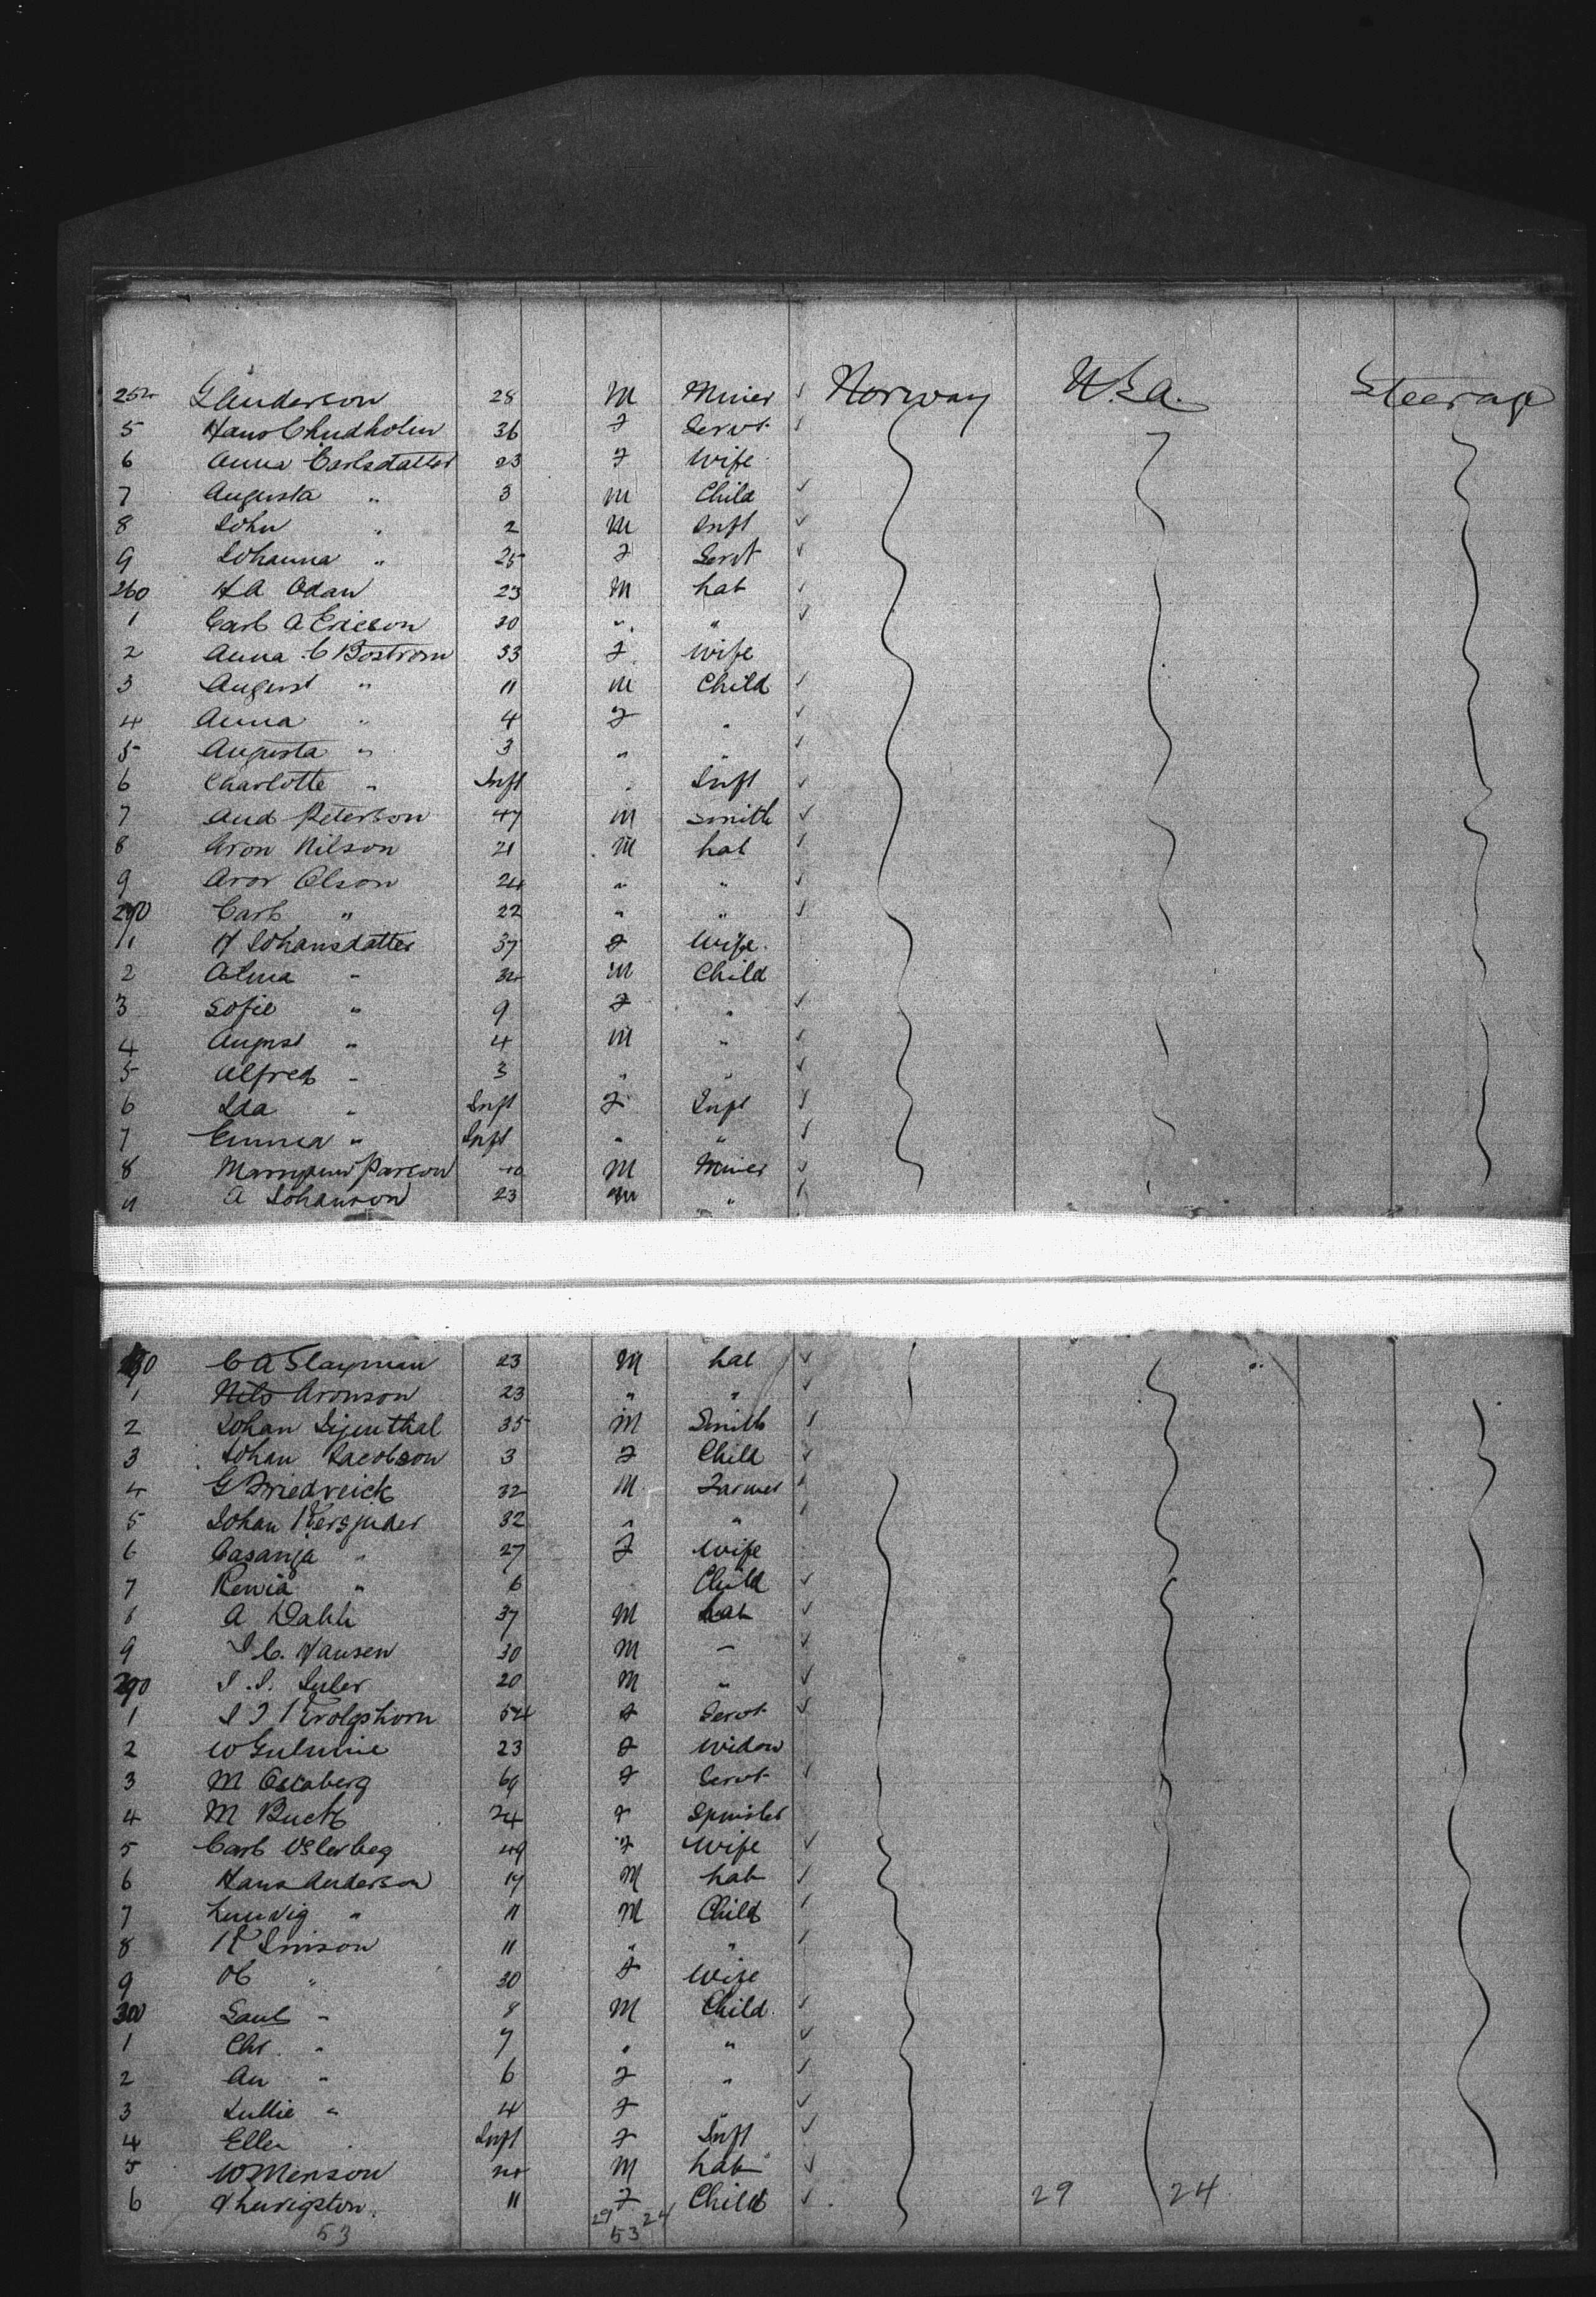 254 G Anderson 28 M Miner Norway U.S.A. Steerage
5 Hans C Lindholm 36 F Servt
6 Anna Carlsdatter 23 F Wife
7 Augusta " 3 M Child
8 John " 2 M Inft
9 Johanna " 25 F Servt
260 H A Odan 23 M Lab
1 Carl A Ericson 20 " "
2 Anna C Bostrom 33 F Wife
3 August " 11 M Child
4 Anna " 4 F "
5 Augusta " 3 " "
6 Charlotte " Inft " Inft
7 And Peterson 47 M Smith
8 Aron Nilson 21 M Lab
9 Aror Olson 24 " "
270 Carl " 22 " "
1 H Johansdatter 37 F Wife
2 Alma " M Child
3 Sofie " 9 F "
4 August " 4 M "
5 Alfred " 3 " "
6 Ida " Inft F Inft
7 Emma " Inft " "
8 Parson M Miner
9 A Johanson 23 M "
280 C A Slayman 23 M Lab
1 Nils Aronson 23 " "
2 Johan 35 M Smith
3 Johan Jacobson 3 F Child
4 G Friedreick 32 M Farmer
5 Johan 32 " "
6 Casanja " 27 F Wife
7 Rewia " 6 " Child
8 A Dahli 37 M Lab
9 J C. Hansen 30 M "
290 J. J. Juler 20 M "
1 J J 54 F Servt
2 W 23 F Widow
3 M 69 F Servt
4 M Buck 24 F Spinster
5 Carl Osterbeg 49 F Wife
6 Hans Anderson 19 M Lab
7 Ludvig " 11 M Child
8 K Jinson 11 " "
9 " 30 F Wife
300 Saul " 8 M Child
1 Chr. " 7 " "
2 An " 6 F "
3 Lullie " 4 F "
4 Ellen Inft F Inft
5 W Menson M Lab
6 11 F Child 29 24
53 29 24
53